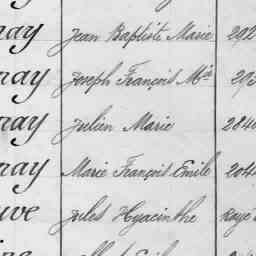 nay Jean Baptiste Marie 292
nay Joseph François Mie 293
nay Julien Marie 284
nay Marie François Emile 204
uve Jules Hyacinthe Rayé